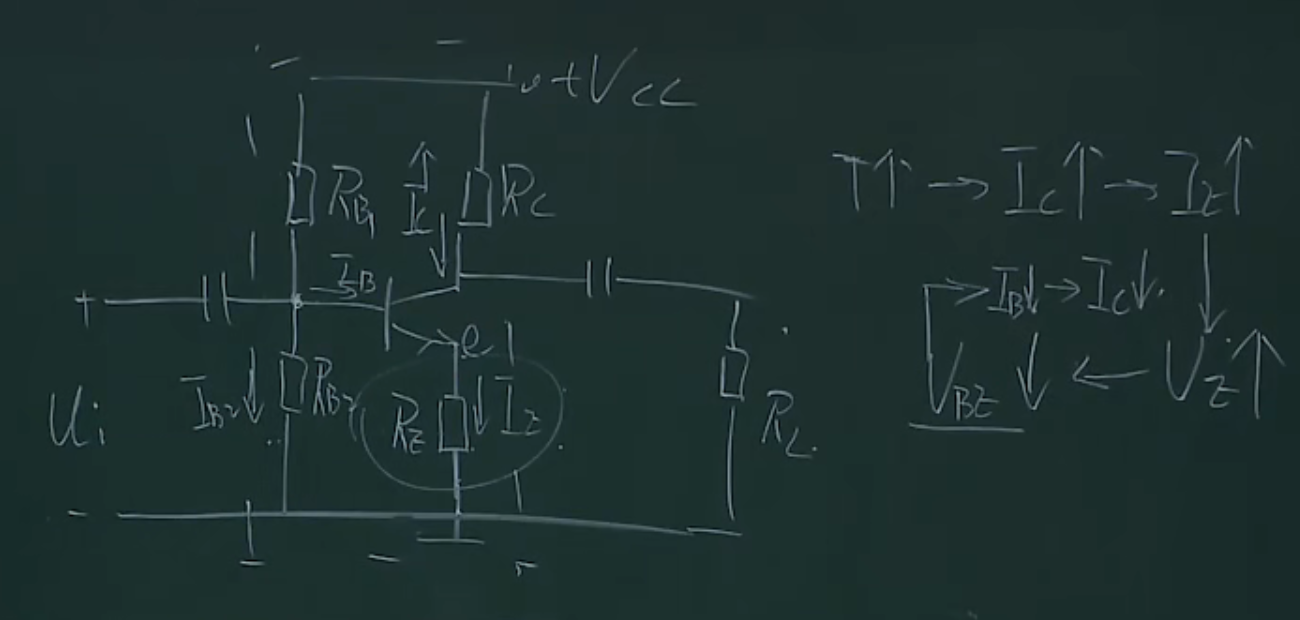 +VCC
RB1
IC
RC
IB
+
e
Ui
IB2
RB2
RE
IE
RL
-
T↑ → IC↑ → IE↑
→ IB↓ → IC↓
VBE ↓ ← VE↑